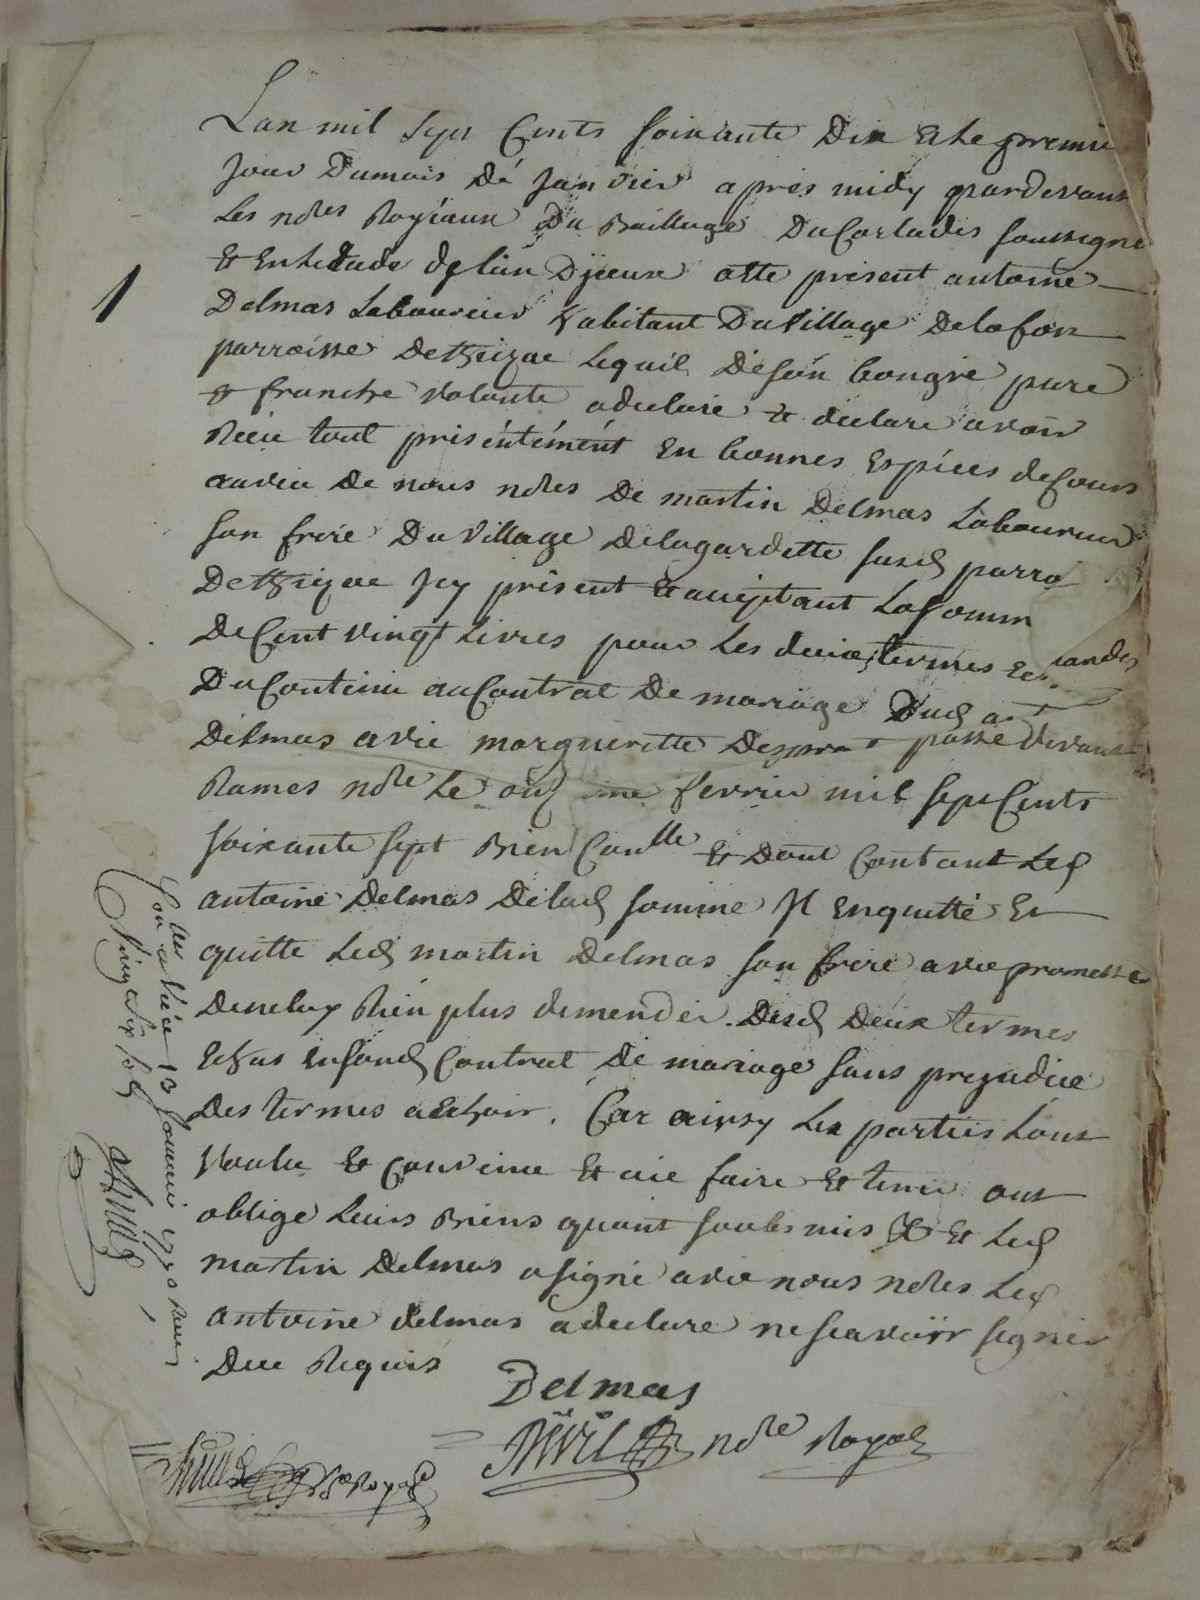 Lan mil sept Cents soixante Dix & le premie
jour Dumois de janvier apres midy pardevant
les nores Royaux Du Baillage Du Carlades soussigne
& en letude de lun Dyceux a este present antoine
Delmas Laboureur habitant Du Village Delafon
parroisse de thezac lequel de son bongré pure
& franche volonté a declaré & declare avoir
Receu tout presentement en bonnes Especes de Cours
au veu de nous nores De martin Delmas Laboureur
son frere Du Village Delagardette susd parro
de thezac Icy present & acceptant La Somm
De Cent vingt Livres pour les deux termes
Du Contenu au Contrat De mariage Dud
Delmas avec marguerite passé devant
Rames nore le fevrier mil sept Cents
soixante sept Bien Conlle & Dont Contant Led
antoine Delmas de lad somme Il En quitté Et
quitte led martin Delmas son frere avec promesse
De ne luy Rien plus demender. Desd Deux termes
Echus en son d Contrat de mariage sans prejudice
Des termes a Echoir. Car ainsy les parties Lont
Voulu & Convenu Et a ce faire & tenir ont
oblige leurs Biens quont soubsmis & Led
martin Delmas a signé avec nous nores Led
antoine delmas a declare ne scavoir signer
De ce Requis
Delmas
nore Royal
Nre Royal
1
a Vic ce 13 Janvier 1770 Receu
Vingt six sols